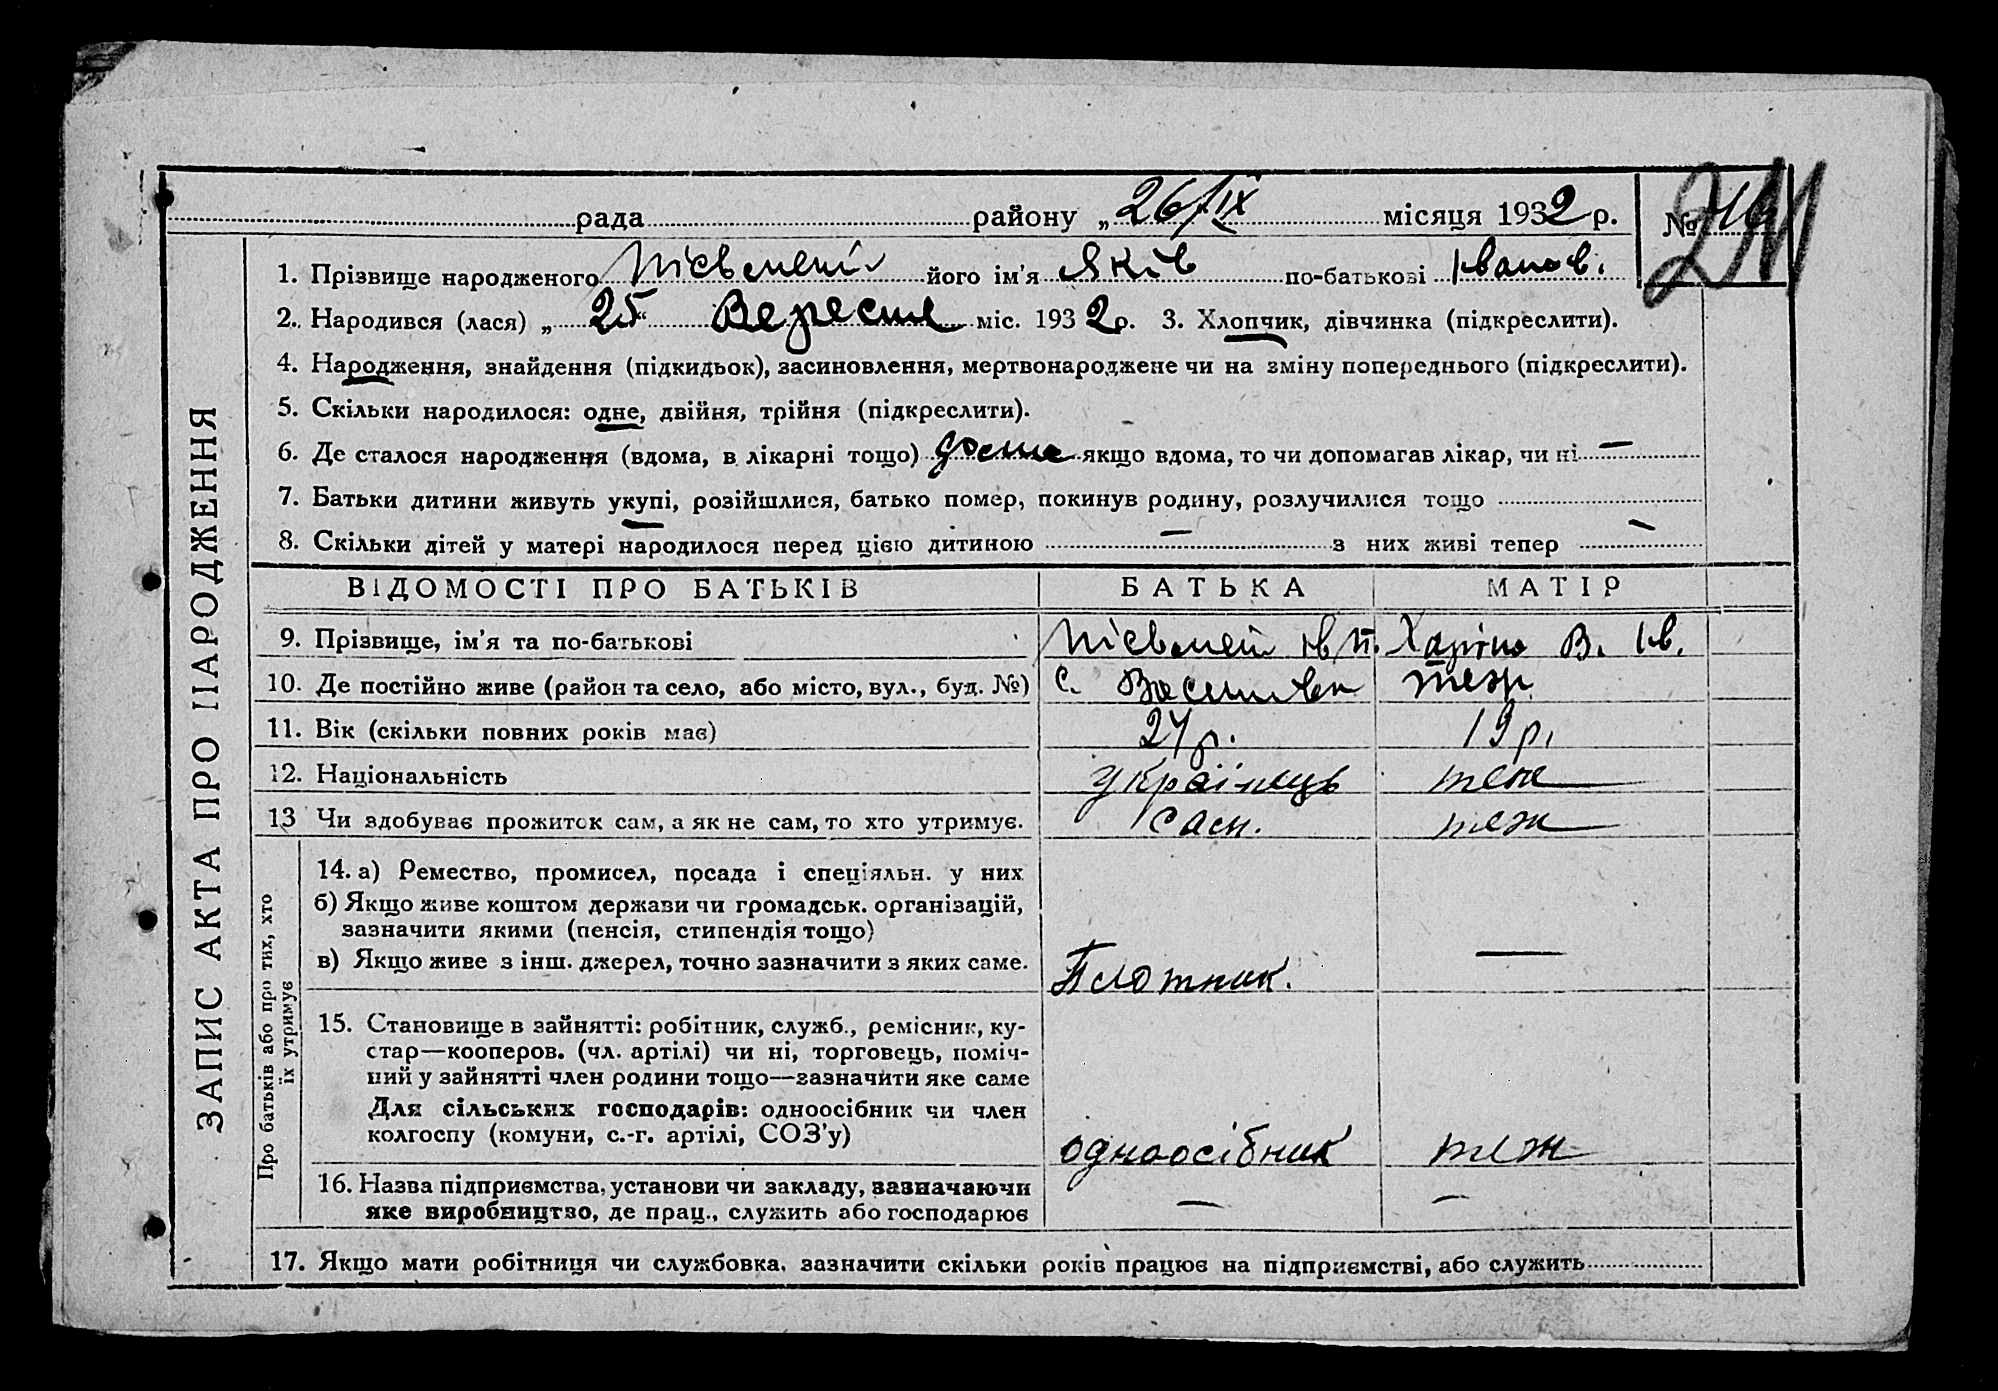 рада района „26/IX місяця 1932 р. №
1. Прізвище народженого його ім'я Яків по-батькові Іванов.
2. Народився (лася) „25“ Вересня міс. 1932 р. 3. Хлопчик, дівчинка (підкреслити).
4. Народження, знайдення (підкидьок), засиновлення, мертвонароджене чи на зміну попереднього (підкреслити).
5. Скільки народилося: одне, двійня, трійня (підкреслити).
6. Де сталося народження (вдома, в лікарні тощо) дома якщо вдома, то чи допомагав лікар, чи ні —
7. Батьки дитини живуть укупі, розійшлися, батько помер, покинув родину, розлучилися тощо
8. Скільки дітей у матері народилося перед цією дитиною — з них живі тепер —
ЗАПИС АКТА ПРО НАРОДЖЕННЯ
ВІДОМОСТІ ПРО БАТЬКІВ БАТЬКА МАТІР
9. Прізвище, ім'я та по-батькові Ів. П. В. Ів.
10. Де постійно живе (район та село, або місто, вул., буд. №) с. теж
11. Вік (скільки повних років має) 27 р. 19 р.
12. Національність українець теж
13 Чи здобуває прожиток сам, а як не сам, то хто утримує. сам. теж
Про батьків або про тих, хто
їх утримує
14. а) Ремество, промисел, посада і спеціяльн. у них
б) Якщо живе коштом держави чи громадськ. організацій,
зазначити якими (пенсія, стипендія тощо)
в) Якщо живе з інш. джерел, точно зазначити з яких саме. Плотник. —
15. Становище в зайнятті: робітник, служб., ремісник, ку-
стар—кооперов. (чл. артілі) чи ні, торговець, поміч-
ний у зайнятті член родини тощо—зазначити яке саме
Для сільських господарів: одноосібник чи член
колгоспу (комуни, с.-г. артілі, СОЗ'у) одноосібник теж
16. Назва підприємства, установи чи закладу, зазначаючи
яке виробництво, де прац., служить або господарює — —
17. Якщо мати робітниця чи службовка, зазначити скільки років працює на підприємстві, або служить